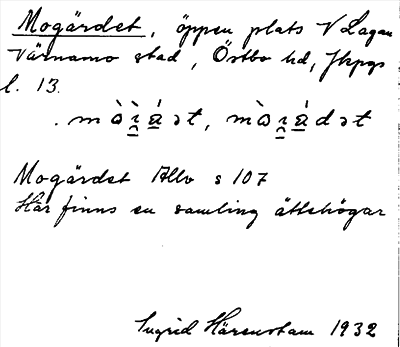 Mogärdet, öppen plats V Lagan
Värnamo stad, Östbo hd, Jkpgs
l. 13.
Mogärdet Allv s 107
Här finns en samling ättehögar
Ingrid Härenstam 1932